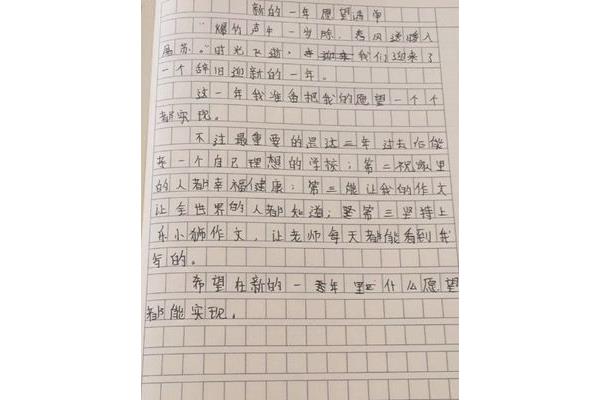 新的一年愿望清单
"爆竹声中一岁除,春风送暖入
屠苏。"时光飞逝,我们迎来了
一个辞旧迎新的一年。
这一年我准备把我的愿望一个个
都实现。
不过最重要的是这三年过去后能
考一个自己理想的学校;第二祝家里
的人都幸福健康;第三能让我的作文
让全世界的人都知道;第三坚持上
乐小狮作文,让老师每天都能看到我
写的。
希望在新的一年里什么愿望
都能实现。